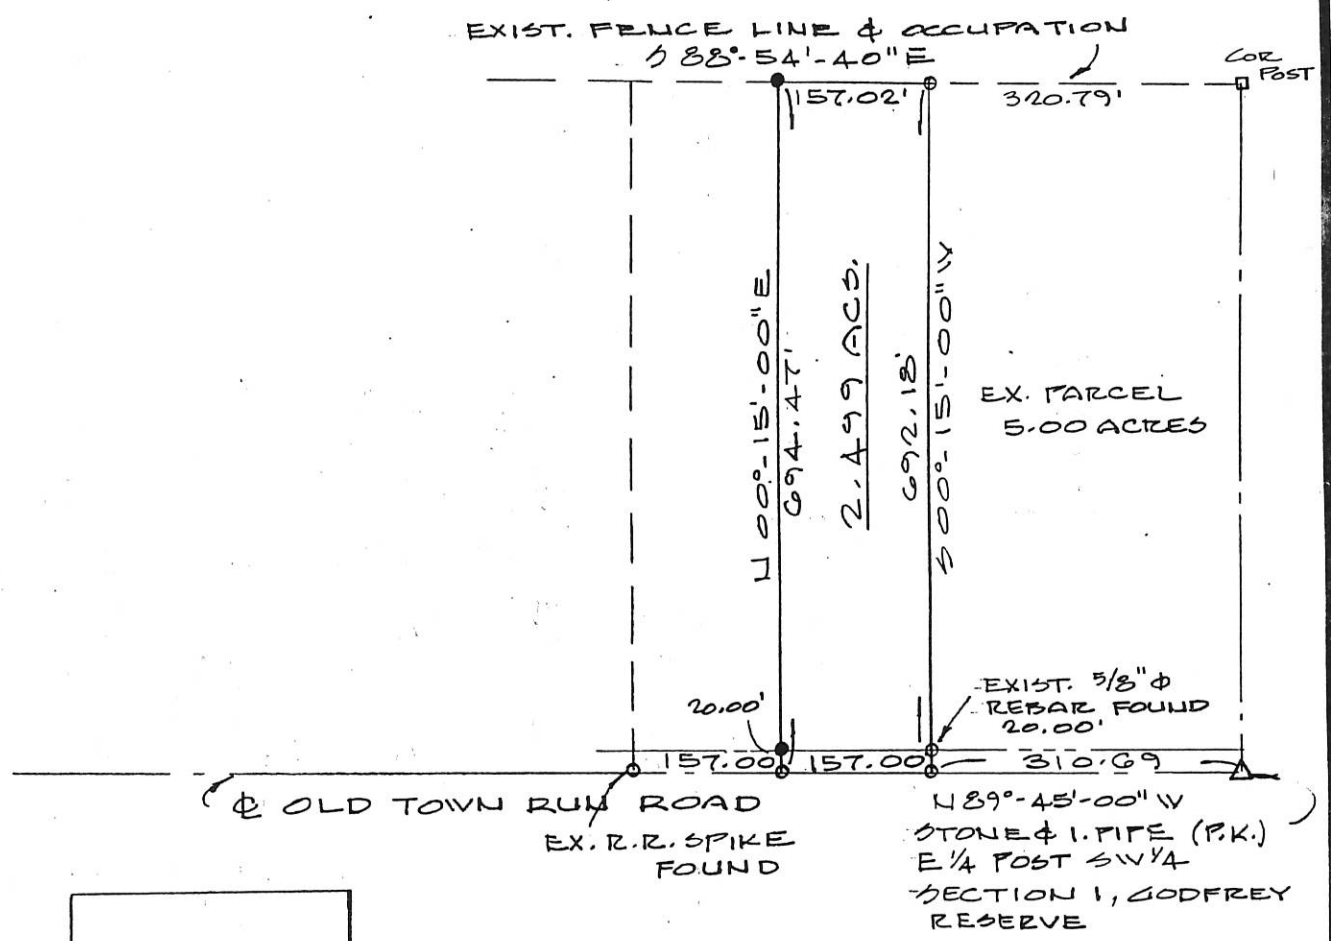 EXIST. FENCE LINE & OCCUPATION
S 88°-54'-40" E
COR
POST
157.02'
320.79'
N 00°-15'-00" E
694.47'
2.499 ACS.
692.18'
S 00°-15'-00" W
EX. PARCEL
5.00 ACRES
20.00'
EXIST. 5/8" Φ
REBAR FOUND
20.00'
157.00
157.00
310.69
℄ OLD TOWN RUN ROAD
EX. R.R. SPIKE
FOUND
N 89°-45'-00" W
STONE & I. PIPE (P.K.)
E 1/4 POST SW 1/4
SECTION 1, GODFREY
RESERVE